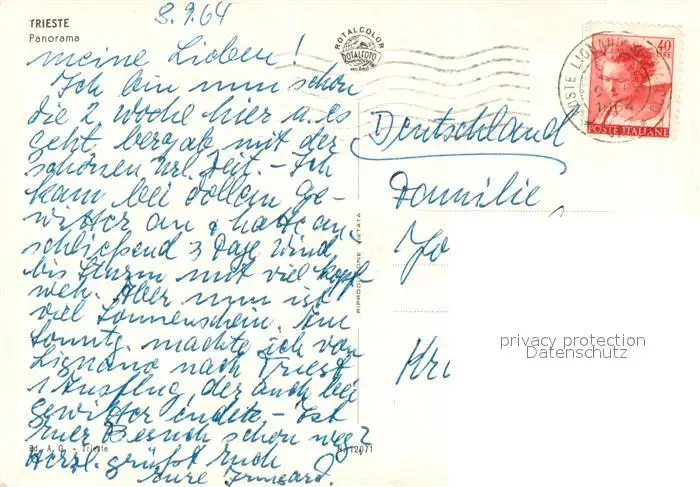 TRIESTE
Panorama
8.9.64
meine Lieben!
Ich bin nun schon
die 2. Woche hier u. es
geht bergab mit der
schönen Url. Zeit. - Ich
kam bei dollem Ge-
witter an & hatte an
schließend 3 Tage Wind
bis Sturm mit viel Kopf-
weh. Aber nun ist
viel Sonnenschein. Am
Sonntg. machte ich von
Lignano nach Triest
1 Ausflug, der auch bei
Gewitter endete, - Ist
euer Besuch schon weg?
Herzl. grüßt euch
eure Irmgard.
Ed. A. G. - Trieste
N. 12071
RIPRODUZIONE VIETATA
ROTALCOLOR
ROTALFOTO
MILANO
40
LIRE
POSTE ITALIANE
POSTE LIGNANO
Deutschland
Familie
Jo
Kri
privacy protection
Datenschutz